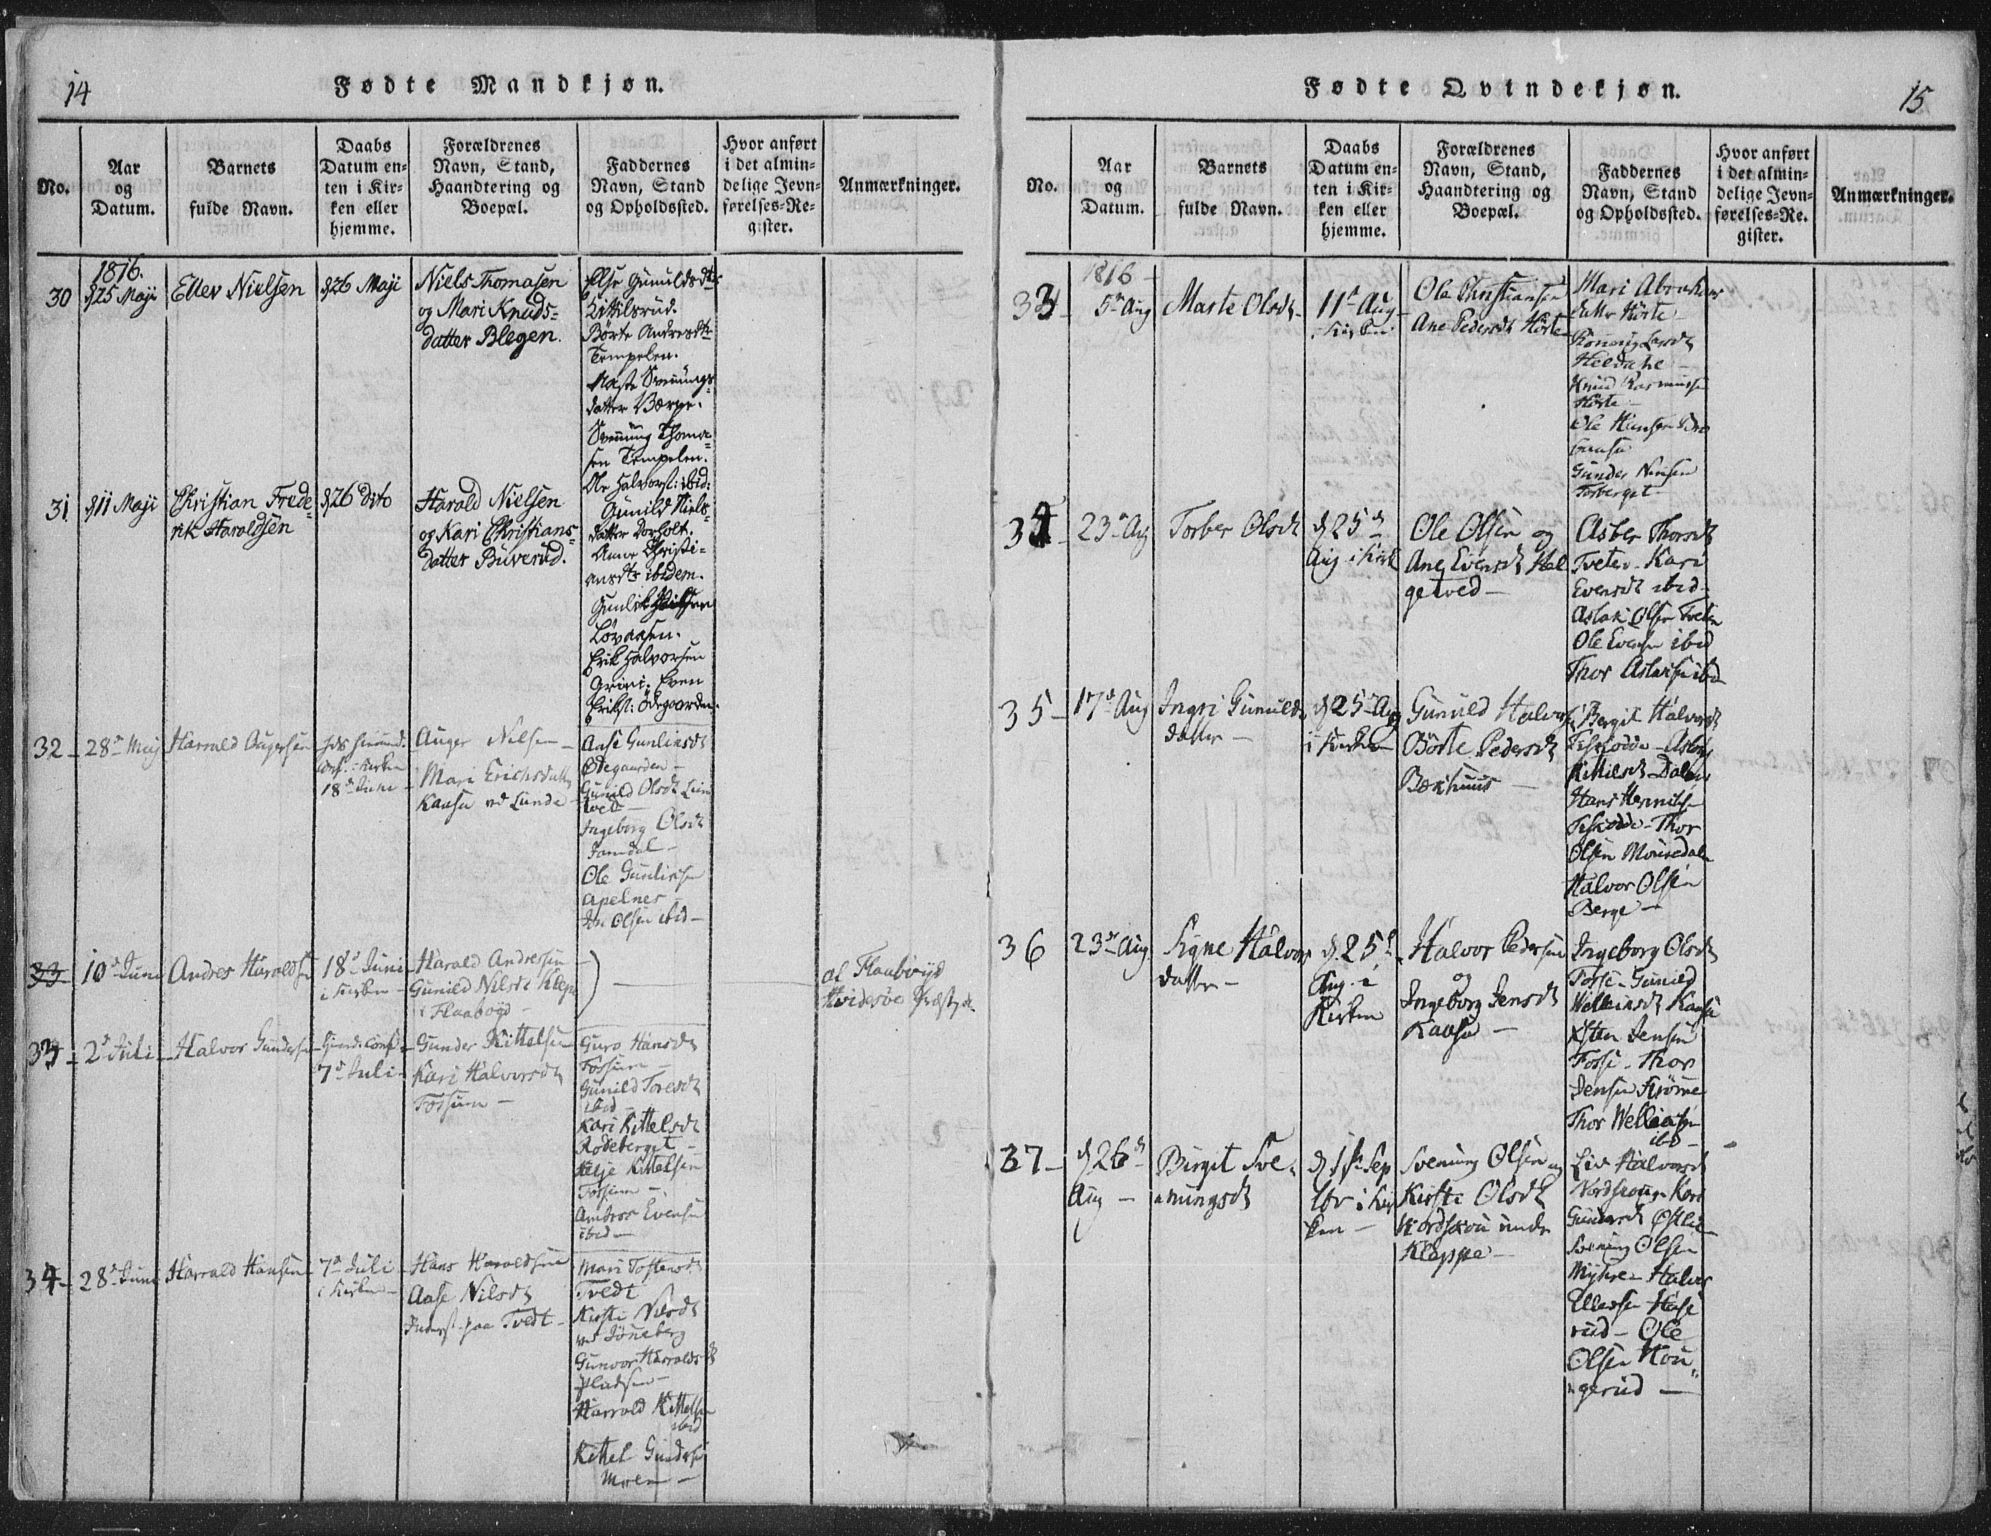 14
Fødte Mandkjøn.
No.
Aar
og
Datum.
Barnets
fulde Navn.
Daabs
Datum en=
ten i Kir=
ken eller
hjemme.
Forældrenes
Navn, Stand,
Haandtering og
Boepæl.
Faddernes
Navn, Stand
og Opholdssted.
Hvor anført
i det almin=
delige Jevn=
førelses=Re=
gister.
Anmærkninger.
1816.
30
25 Maji
Ellev Nielsen
26 Maji
Niels Thomasen
og Mari Knuds=
datter Blegen.
Else Gunuldsdtr
Kittilsrud.
Børte Andersdtr
Tempelen.
datter Berge.
Svenung Thoma=
sen Tempelen.
Ole Halvors: ibid:
31
11 Maji
Christian Frede=
rik Haroldsen
26 dito
Harald Nielsen
og Kari Christians=
datter Buverud.
Gunild Niels=
datter Dorholt.
Anne Christi=
ansdtr ibidem.
Gunlik
Løvaasen.
Erik Halvorsen
Grini. Even
Eriks: Ødegaarden.
32
28 Maj
Harrald Augersen
18 Juni
Auger Nilsen
Mari Erichsdatter
Kaasa ved Lunde
Aase Gunliksdt
Ødegaarden
Gunild Olsdt
Ingeborg Olsdt
Jamdal
Ole Gunliksen
Apelnes
Jon Olsen ibid
33
10 Juni
Andres Haraldsen
18 Juni
i Kirken
Harald Andersen
Gunild Nilsdt Klep
i Flaabøyd
af Flaabøyd
Hvidesøe Præstgd.
33
2 Juli
Halvor Gundersen
7 Juli
Gunder Kittelsen
Kari Halvorsdt
Fossum
Guro Hansdt
Fossum
Gunild Toresdt
ibid
Kari Kittelsdt
Rodeberget
Kittelsen
Fossum
Andres Evensen
ibid
34
28 Juni
Harrald Hansen
7 Juli
i Kirken
Hans Haraldsen
Aase Nilsdt
Inderst paa Tvedt
Mari Tostensdt
Tvedt
Kirsti Nilsdt
ved Jøneberg
Gunvor Harraldsdt
Pladsen
Harrald Kittelsen
ibid
Kittel Gundersen
Moen
15
Fødte Qvindekjøn.
No.
Aar
og
Datum.
Barnets
fulde Navn.
Daabs
Datum en=
ten i Kir=
ken eller
hjemme.
Forældrenes
Navn, Stand,
Haandtering og
Boepæl.
Faddernes
Navn, Stand
og Opholdssted.
Hvor anført
i det almin=
delige Jevn=
førelses=Re.
gister.
Anmærkninger.
1816
33
5 Aug
Marte Olsdt
11 Aug
i Kirken
Ole Christiansen
Ane Pedersdt Hørte
Mari Abrahams
datter Hørte
Ronnoug Larsdt
Heldahe
Knud Rasmussen
Hørte
Ole Hansen
Gunder Nensen
Torberget
34
23 Aug
Torber Olsdt
d 25
Aug i Kirk
Ole Olsen og
Ane Evensdt Hel
getved
Asber Thorsdt
Tveten Kari
Evensdt ibid
Aslak Olsen Tveten
Ole Evensen ibid
Thor Aslaksen ibid
35
17 Aug
Ingri Gunulds
datter
d 25 Aug
i Kirken
Gunuld Halvorsen
Børte Pedersdt
Bækhuus
Bergit Halvorsdt
Fiskodde
Kittilsdt Dalen
Hans Henriksen
Fiskodde Thor
Olsen Mousedalen
Halvor Olsen
Berge
36
23 Aug
Signe Halvors
datter
d 25
Aug i
Kirken
Halvor Pedersen
og
Ingeborg Jensdt
Kaasa
Ingeborg Olsdt
Fosse Gunild
Welleinsdt Kaasa
Østen Jensen
Fosse Thor
Jensen Strømme
Thor Welleinsen
ibid
37
d 26
Aug
Birgit Sve
nungsdt
d 1 Sep
tbr i Kir
ken
Svenung Olsen og
Kirsti Olsdt
Nordskou under
Kleppe
Liv Halvorsdt
Nordskoug Kari
Gundersdt Østlie
Svenung Olsen
Myhre Halvor
Ellevsen Hase
rud Ole
Olsen Kou
gerud